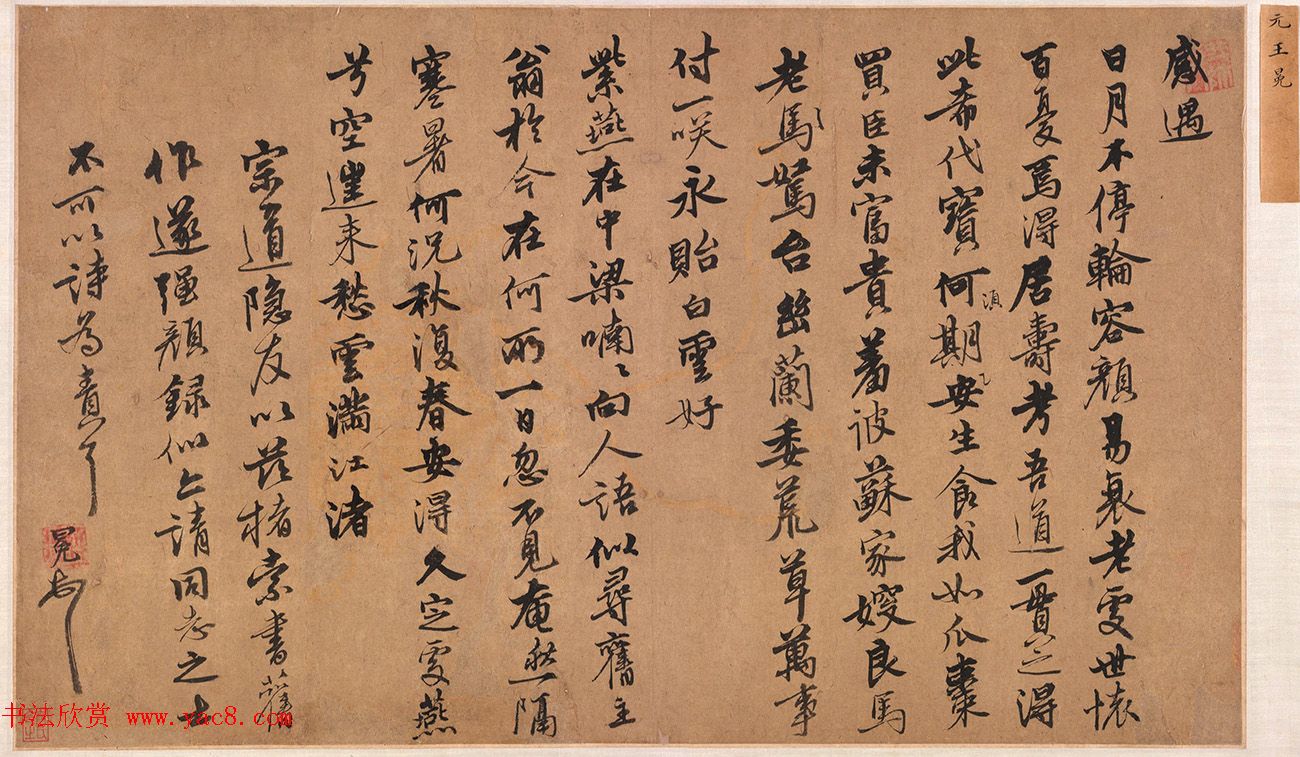 元王冕
感遇
日月不停輪容顏易衰老處世懷
百憂焉得居壽考吾道一貫之得
此希代寶何須期安生食我如瓜棗
買臣未富貴羞彼蘇家嫂良馬
老馬駑台幽蘭委荒草萬事
付一咲永貽白雲好
紫燕在中梁喃〻向人語似尋舊主
翁於今在何所一日忽不見奄然隔
寒暑何況秋復春安得久定處燕
兮空還來愁雲滿江渚
宗道隐友以茲楮索書舊
作遂强顏録似請同志之士
不可以詩為責耳
冕
书法欣赏 www.yac8.com